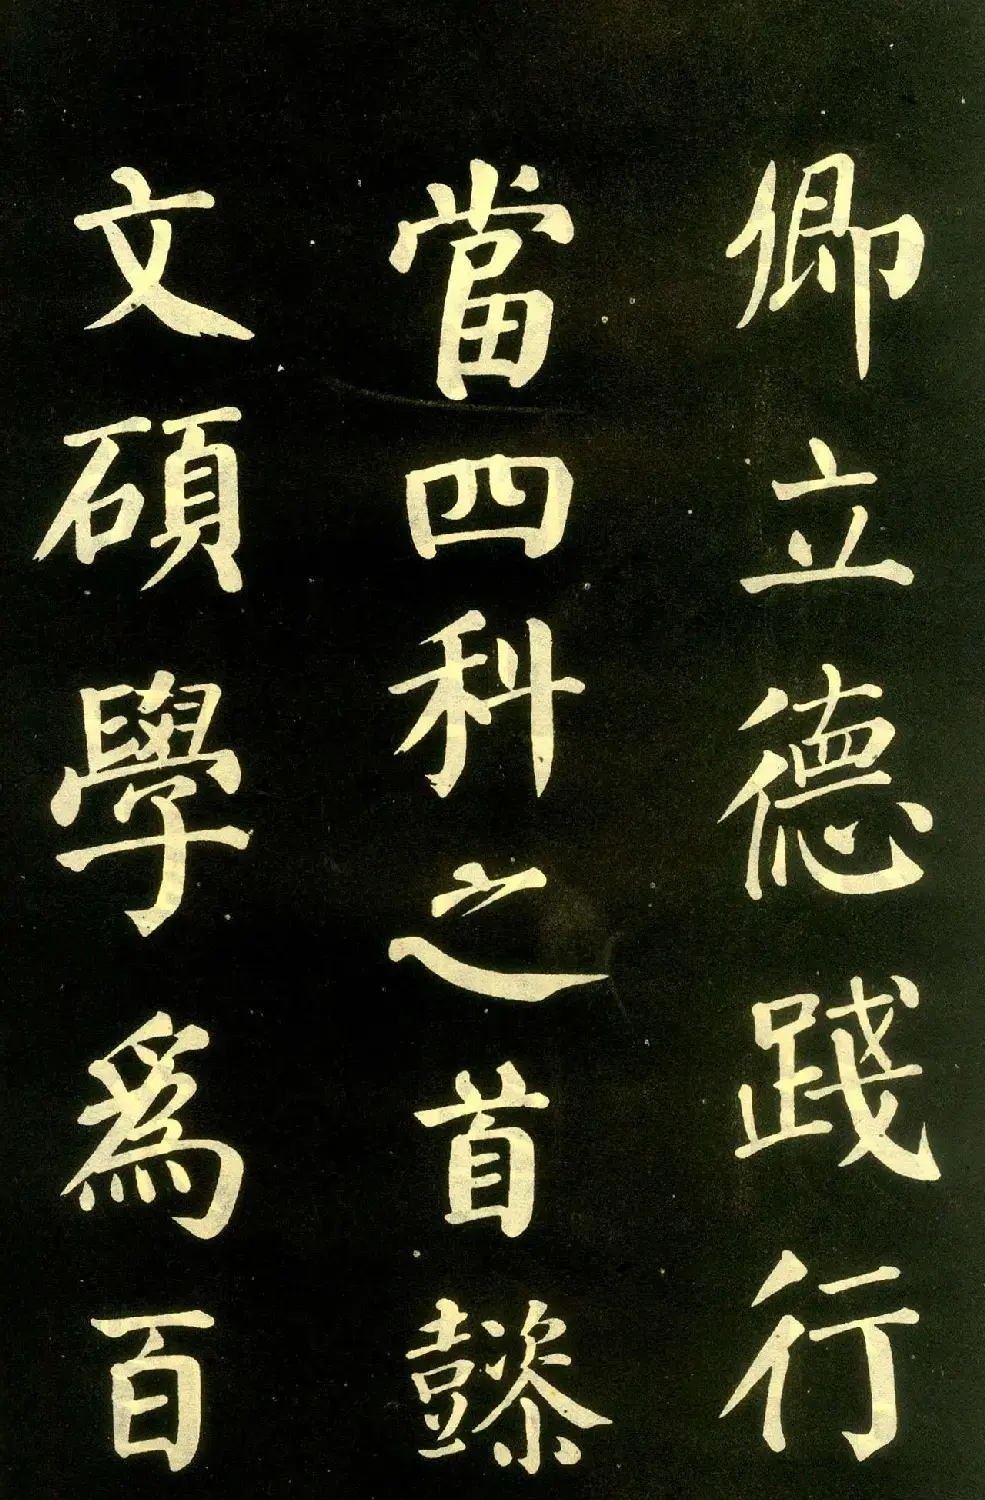 卿立德踐行
當四科之首懿
文碩學爲百